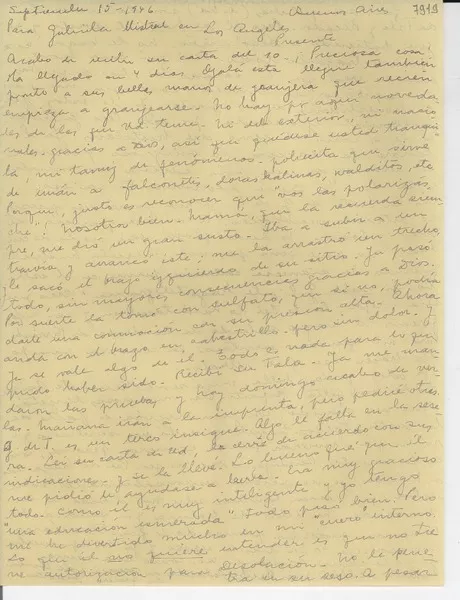 Septiembre 15-1946 Buenos Aires 7919
Para Gabriela Mistral en Los Angeles
Presente
Acabo de recibir su carta del 10-, ¡Preciosa como!
Ha llegado en 4 días. Ojalá esta llegue también
pronto a sus bellas manos de granjera que recién
empieza a granjearse. No hay por aquí noveda-
des de las que Ud. teme. Ni del exterior, ni nacio-
nales, gracias a Dios, así que quédese usted tranqui-
la, mi tanez de fenómenos, pobrecita que sirve
de imán a falconetes, doras kalinas, walditos, etc.
Porque, justo es reconocer que "vos las polarizas,
che"! Nosotros bien. Mamá, que la recuerda siem-
pre, me dió un gran susto. Iba a subir a un
tranvía y arrancó éste; me la arrastró un trecho,
le sacó el brazo izquierdo de su sitio. Ya pasó
todo, sin mayores consecuencias gracias a Dios.
Por suerte la tomo con sulfato, que si no, podría
darle una conmoción con su presión alta. Ahora
anda con el brazo en cabestrillo. Pero sin dolor. Y
ya se vale algo de él. Todo es nada para lo que
pudo haber sido. Recibí su Tala. Ya me man-
daron las pruebas y hoy domingo acabo de ver-
las. Mañana irán a la imprenta, pero pediré otras.
G. de T. es un terco insigne. Algo le falta en la sese-
ra. Leí su carta de Ud., la cerré de acuerdo con sus
indicaciones. Y se la llevé. Lo bueno fué que él
me pidió le ayudase a leerla. Era muy gracioso
todo. Como él es muy inteligente y yo tengo
"una educación esmerada" todo pasó bien. Pero
me he divertido mucho en mi "cuero" interno.
Lo que él no quiere entender es que no le
autorización para Desolación. No le pene-
tra en su seso. A pesar